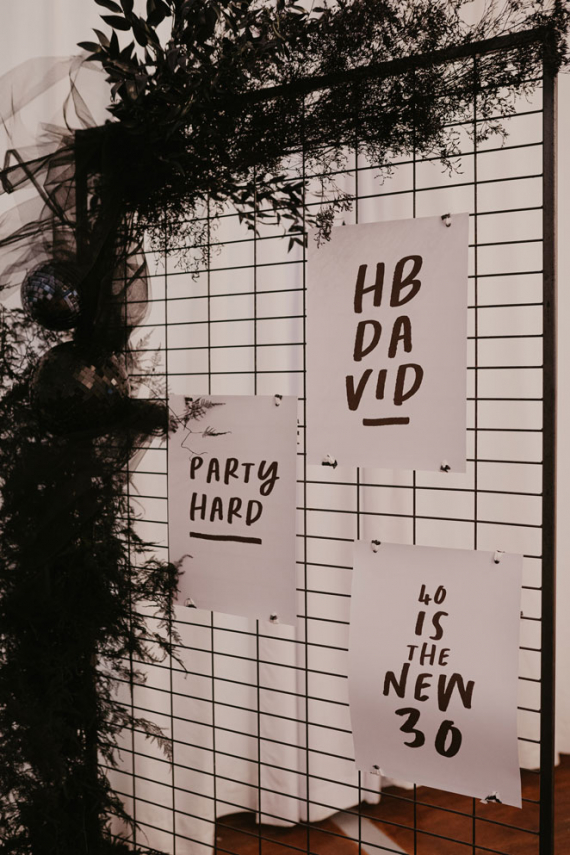 HB
DA
VID
PARTY
HARD
40
IS
THE
NEW
30